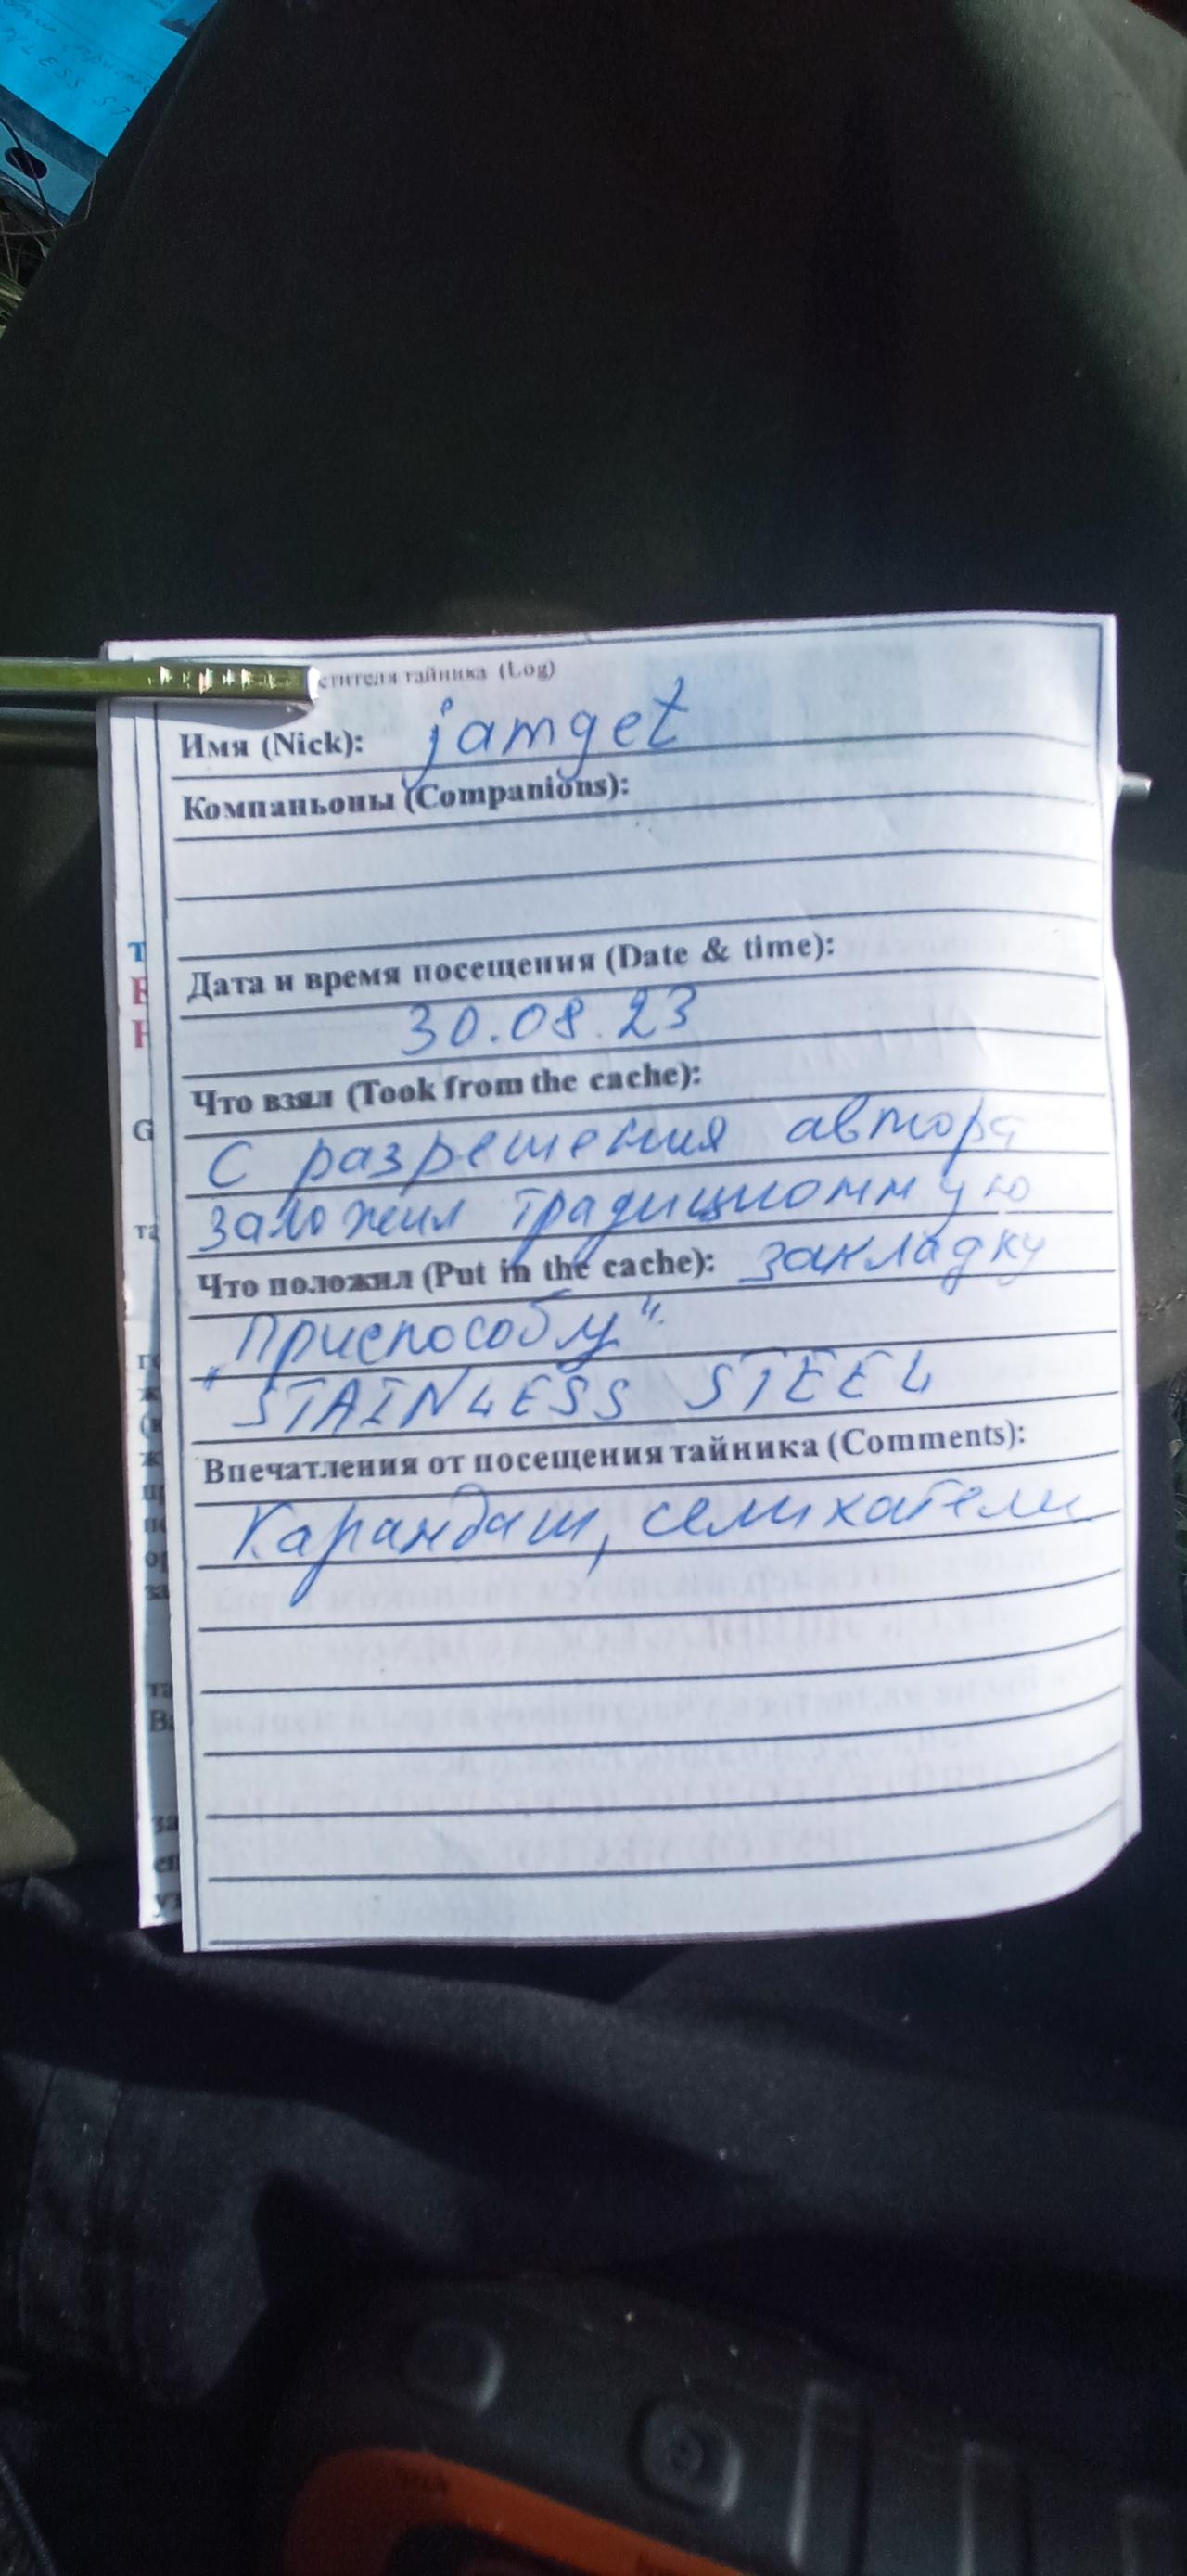 стителя тайника (Log)
Имя (Nick): jamget
Компаньоны (Companions):
Дата и время посещения (Date & time):
30.08.23
Что взял (Took from the cache):
С разрешения автора
заложил традиционную
Что положил (Put in the cache): закладку
„Приспособу"
STAINLESS STEEL
Впечатления от посещения тайника (Comments):
Карандаш,